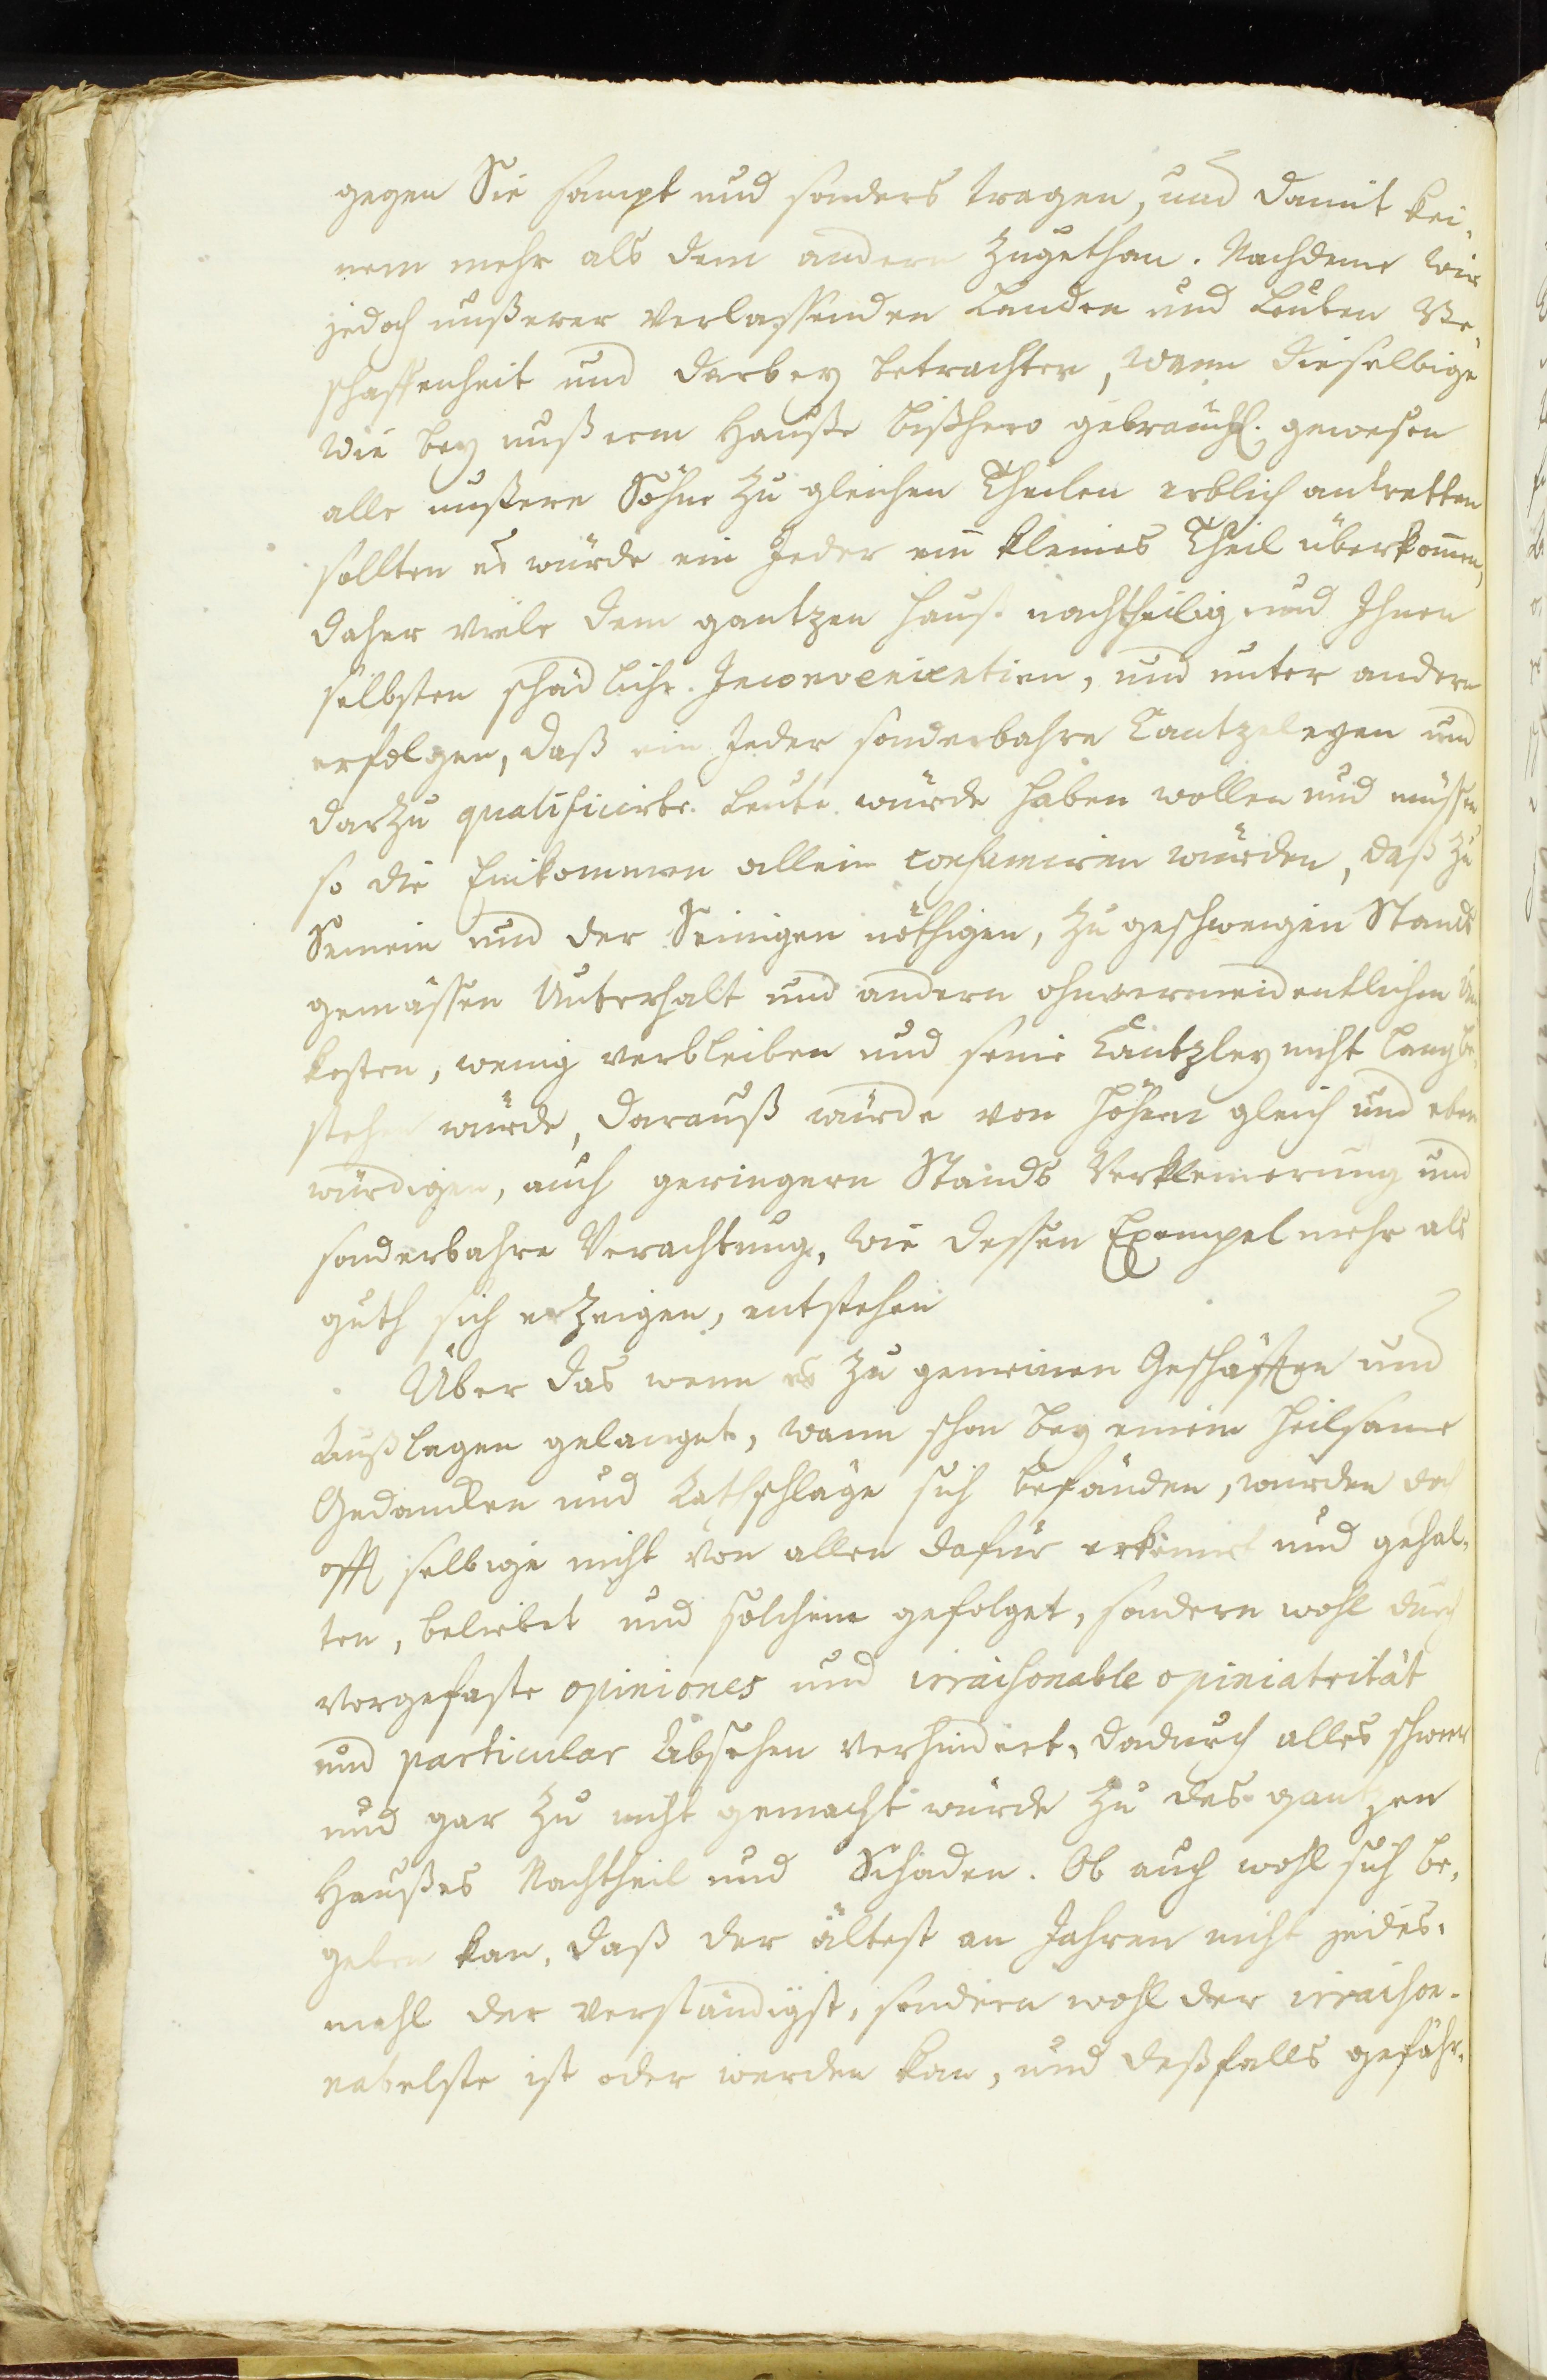 gegen Sie sampt und sonders tragen, und damit kei-
nem mehr als dem andern zugethan. Nachdeme wir
jedoch unßerer verlassenden Landen und Leuten Be-
schaffenheit und darbey betrachten, wann dieselbige
wie bey unßerm Hauße bißhero gebräuchl. gewesen
alle unßere Söhne zu gleichen Theilen erblich antretten
sollten es würde ein Jeder ein kleines Theil überkom̅en,
daher viele dem gantzen Hauß nachtheilig und Ihnen
selbsten schädliche Inconvenientien, und unter andern
erfolgen, daß ein Jeder sonderbahre Cantzeleyen und
darzu qualificirte Leute würde haben wollen und müssen
so die Einkommen allein consumiren würden, daß zu
Seinem und der Seinigen nöthigen, zu geschweigen Stands
gemässen Unterhalt und andern ohnvermeidentlichen Un
kosten, wenig verbleiben und seine Cantzley nicht lang be-
stehen würde, darauß würde von höhern gleich und eben
würdigen, auch geringern Stands Verkleinerung und
sonderbahre Verachtung, wie dessen Exempel mehr als
guth sich erzeigen, entstehen
Über das wenn es zu gemeinen Geschäfften und
Außlagen gelanget, wann schon bey einem heilsame
Gedancken und Rathschläge sich befänden, würden doch
offt selbige nicht von allen dafür erkennt und gehal-
ten, beliebet und solchem gefolget, sondern wohl durch
vorgefaste opiniones und irraisonable opiniatrität
und particular Absehen verhindert, dadurch alles schwer
und gar zu nicht gemacht würde zu des gantzen
Haußes Nachtheil und Schaden. Ob auch wohl sich be-
geben kan, daß der ältest an Jahren nicht jedes-
mahl der verständigst, sondern wohl der irraison-
nabelste ist oder werden kan, und deßfalls gefähr-